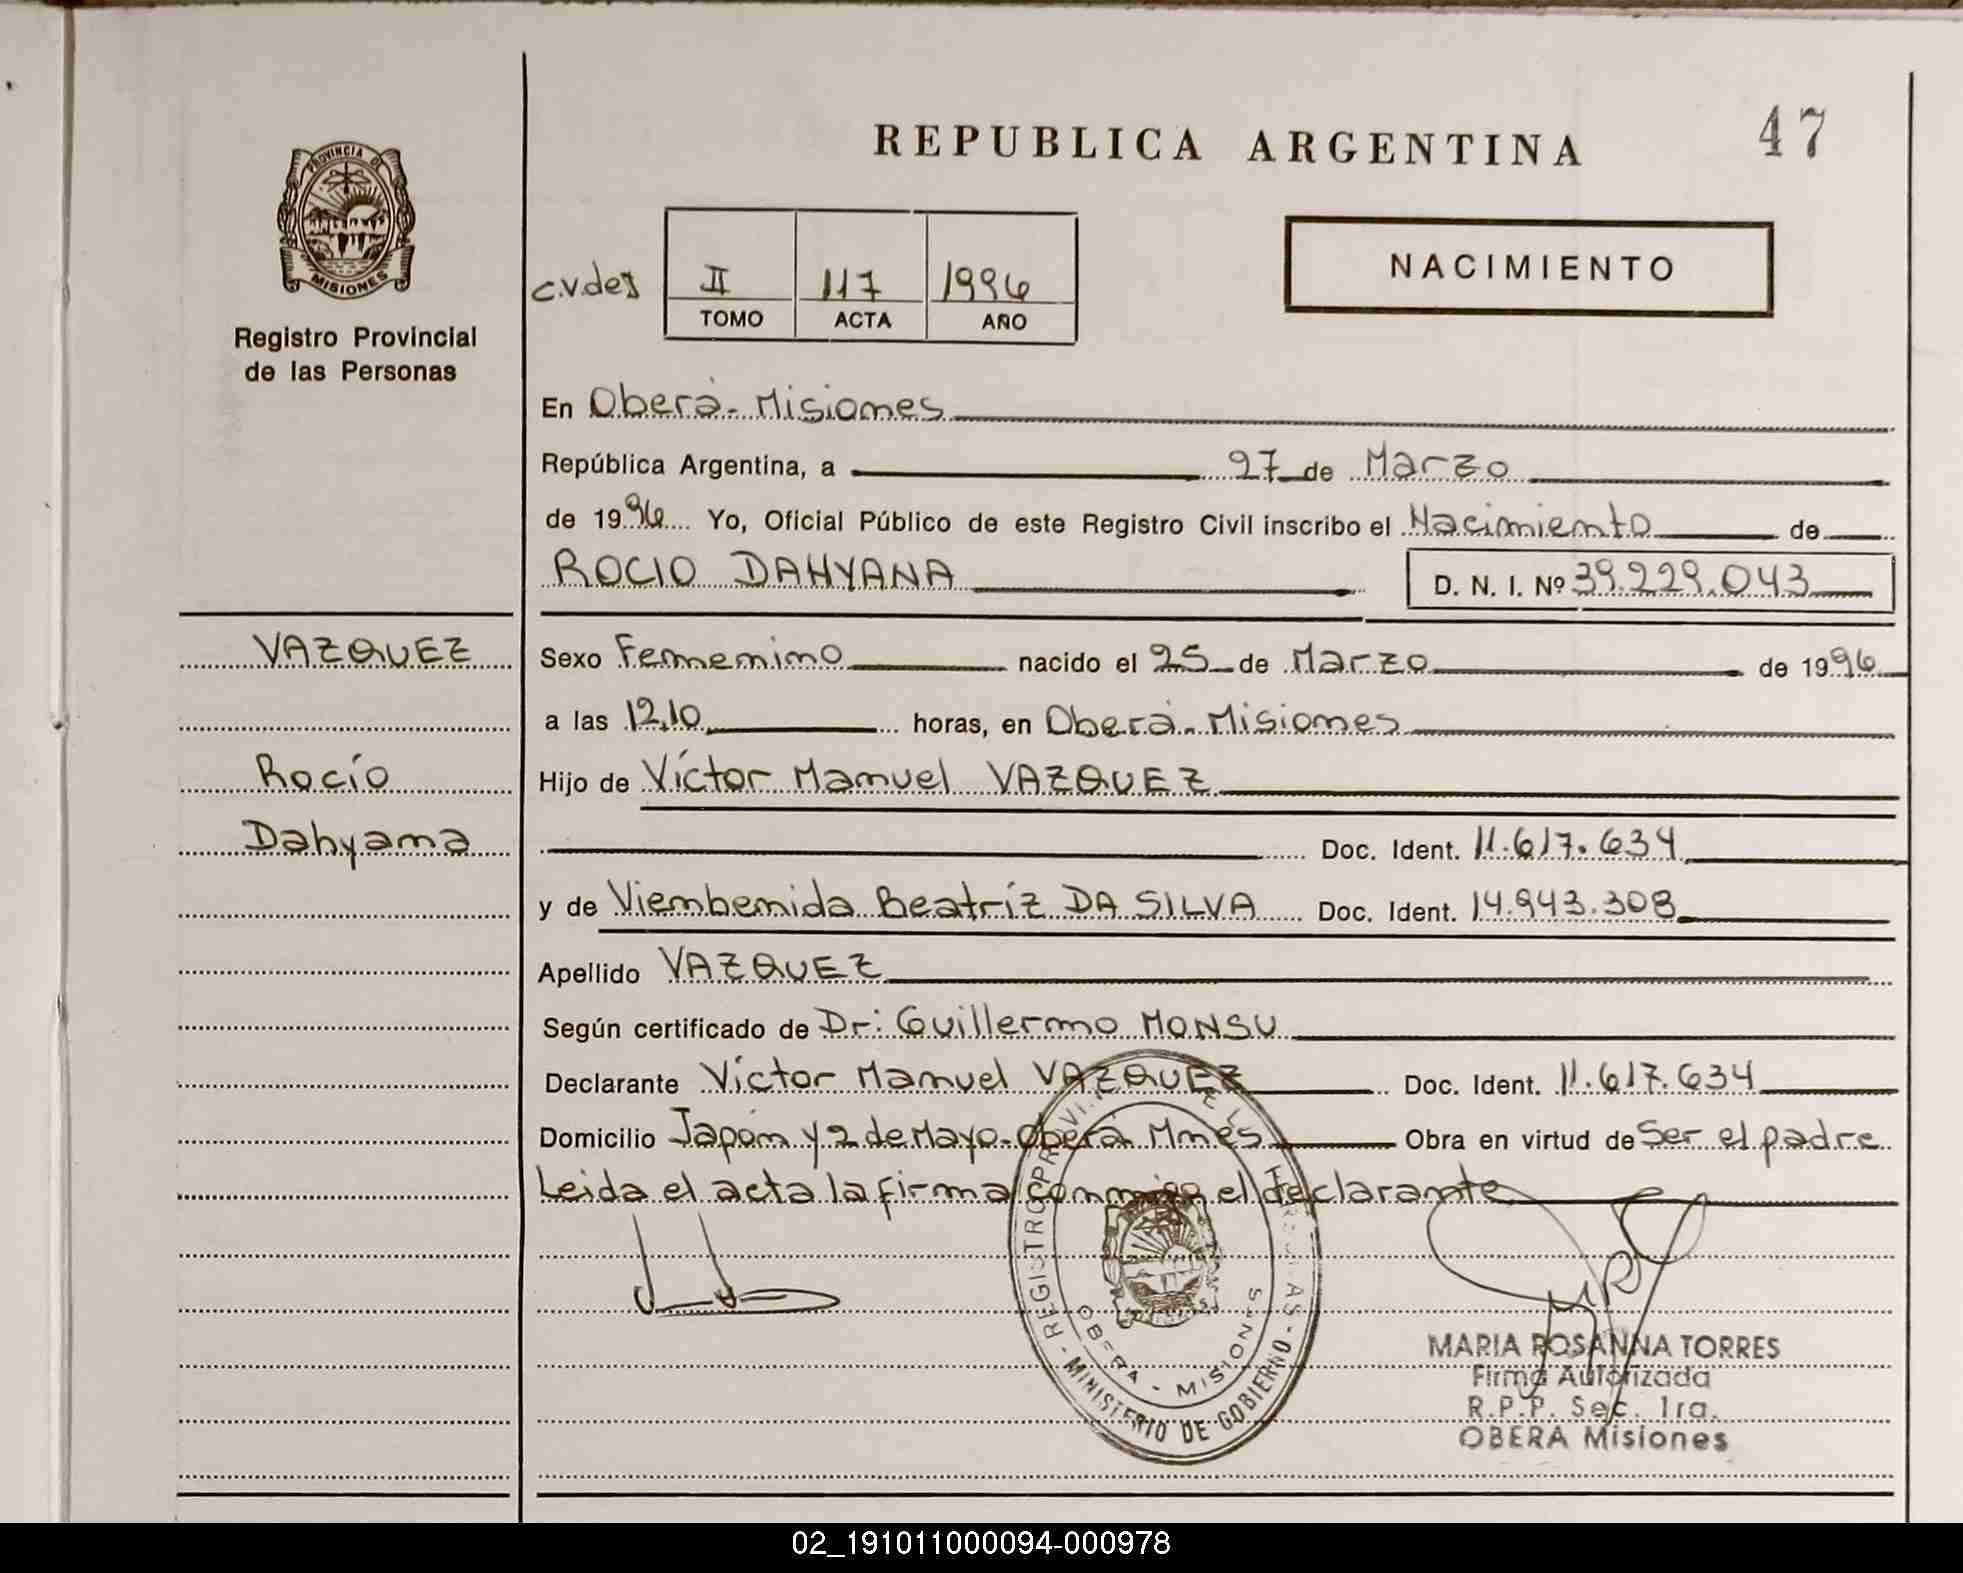 47
REPUBLICA ARGENTINA
PROVINCIA DE
MISIONES
NACIMIENTO
c.v.des
II 117 1996
TOMO ACTA AÑO
Registro Provincial
de las Personas
En Oberá - Misiones
República Argentina, a 27 de Marzo
de 1996 Yo, Oficial Público de este Registro Civil inscribo el Nacimiento de
ROCIO DAHYANA D. N. I. Nº 39.229.043
VAZQUEZ
Rocío
Dahyana
Sexo Femenino nacido el 25 de Marzo de 1996
a las 12,10 horas, en Oberá - Misiones
Hijo de Víctor Manuel VAZQUEZ
Doc. Ident. 11.617.634
y de Vienbenida Beatríz DA SILVA Doc. Ident. 14.943.308
Apellido VAZQUEZ
Según certificado de Dr: Guillermo MONSU
Declarante Víctor Manuel VAZQUEZ Doc. Ident. 11.617.634
Domicilio Japón y 2 de Mayo - Oberá Mnes Obra en virtud de Ser el padre
Leida el acta la firma conmigo el declarante
MINISTERIO DE GOBIERNO
OBERA - MISIONES
MARIA ROSANNA TORRES
Firma Autorizada
R.P.P. Sec. 1ra.
OBERA Misiones
02_191011000094-000978